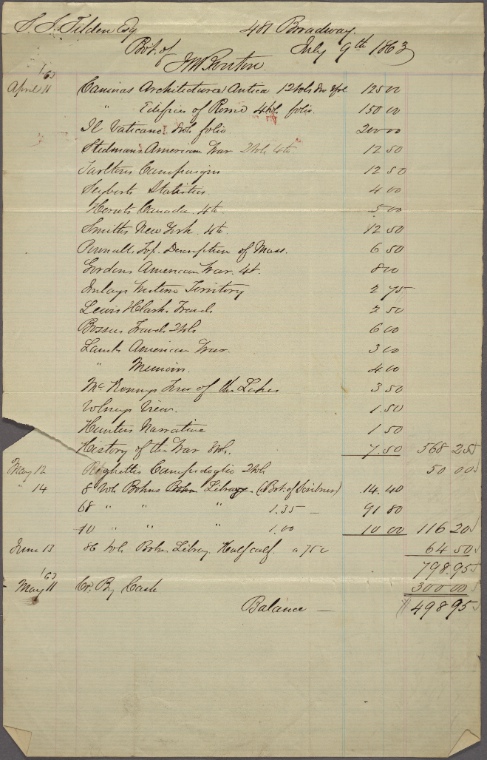 S. J. Tilden Esq 481 Broadway.
July 9th 1863
Bot. of
J W Bouton
/63
April 11 Caninas Architectura Antica 12 vols 125 00
" Edifices of Rome 4 vols. folio. 150 00
Il Vaticano 8 vols folio 200 00
Stedman's American War 2 vols 4to 12 50
Tarltons Campaigns 12 50
Seyberts Statistics 4 00
Heriots Canada. 4to 5 00
Smiths New York. 4to. 12 50
Top. Description of Mass. 6 50
Gordons American War. 4t. 8 00
Imlays Western Territory 2 75
Lewis & Clark Travels 2 50
Bossu Travels 2 vols 6 00
Lambs American War. 3 00
" Memoirs. 4.00
McKenneys Tour of the Lakes 3 50
Volneys View. 1.50
Hunters Narrative 1 50
History of the War 7.50 568 25
May 12 Righetti Campidoglio 2 vols 50 00
" 14 8 Vols Bohns Library. (Bot. of Scribners) 14.40
68 " " " 1.35 — 91 80
10 " " " 1.00 10 00 116 20
June 13 86 vols Bohn. Library Half calf a 75c 64 50
798.95
/63
May 11 Cr. By Cash 300 00
Balance — 498 95